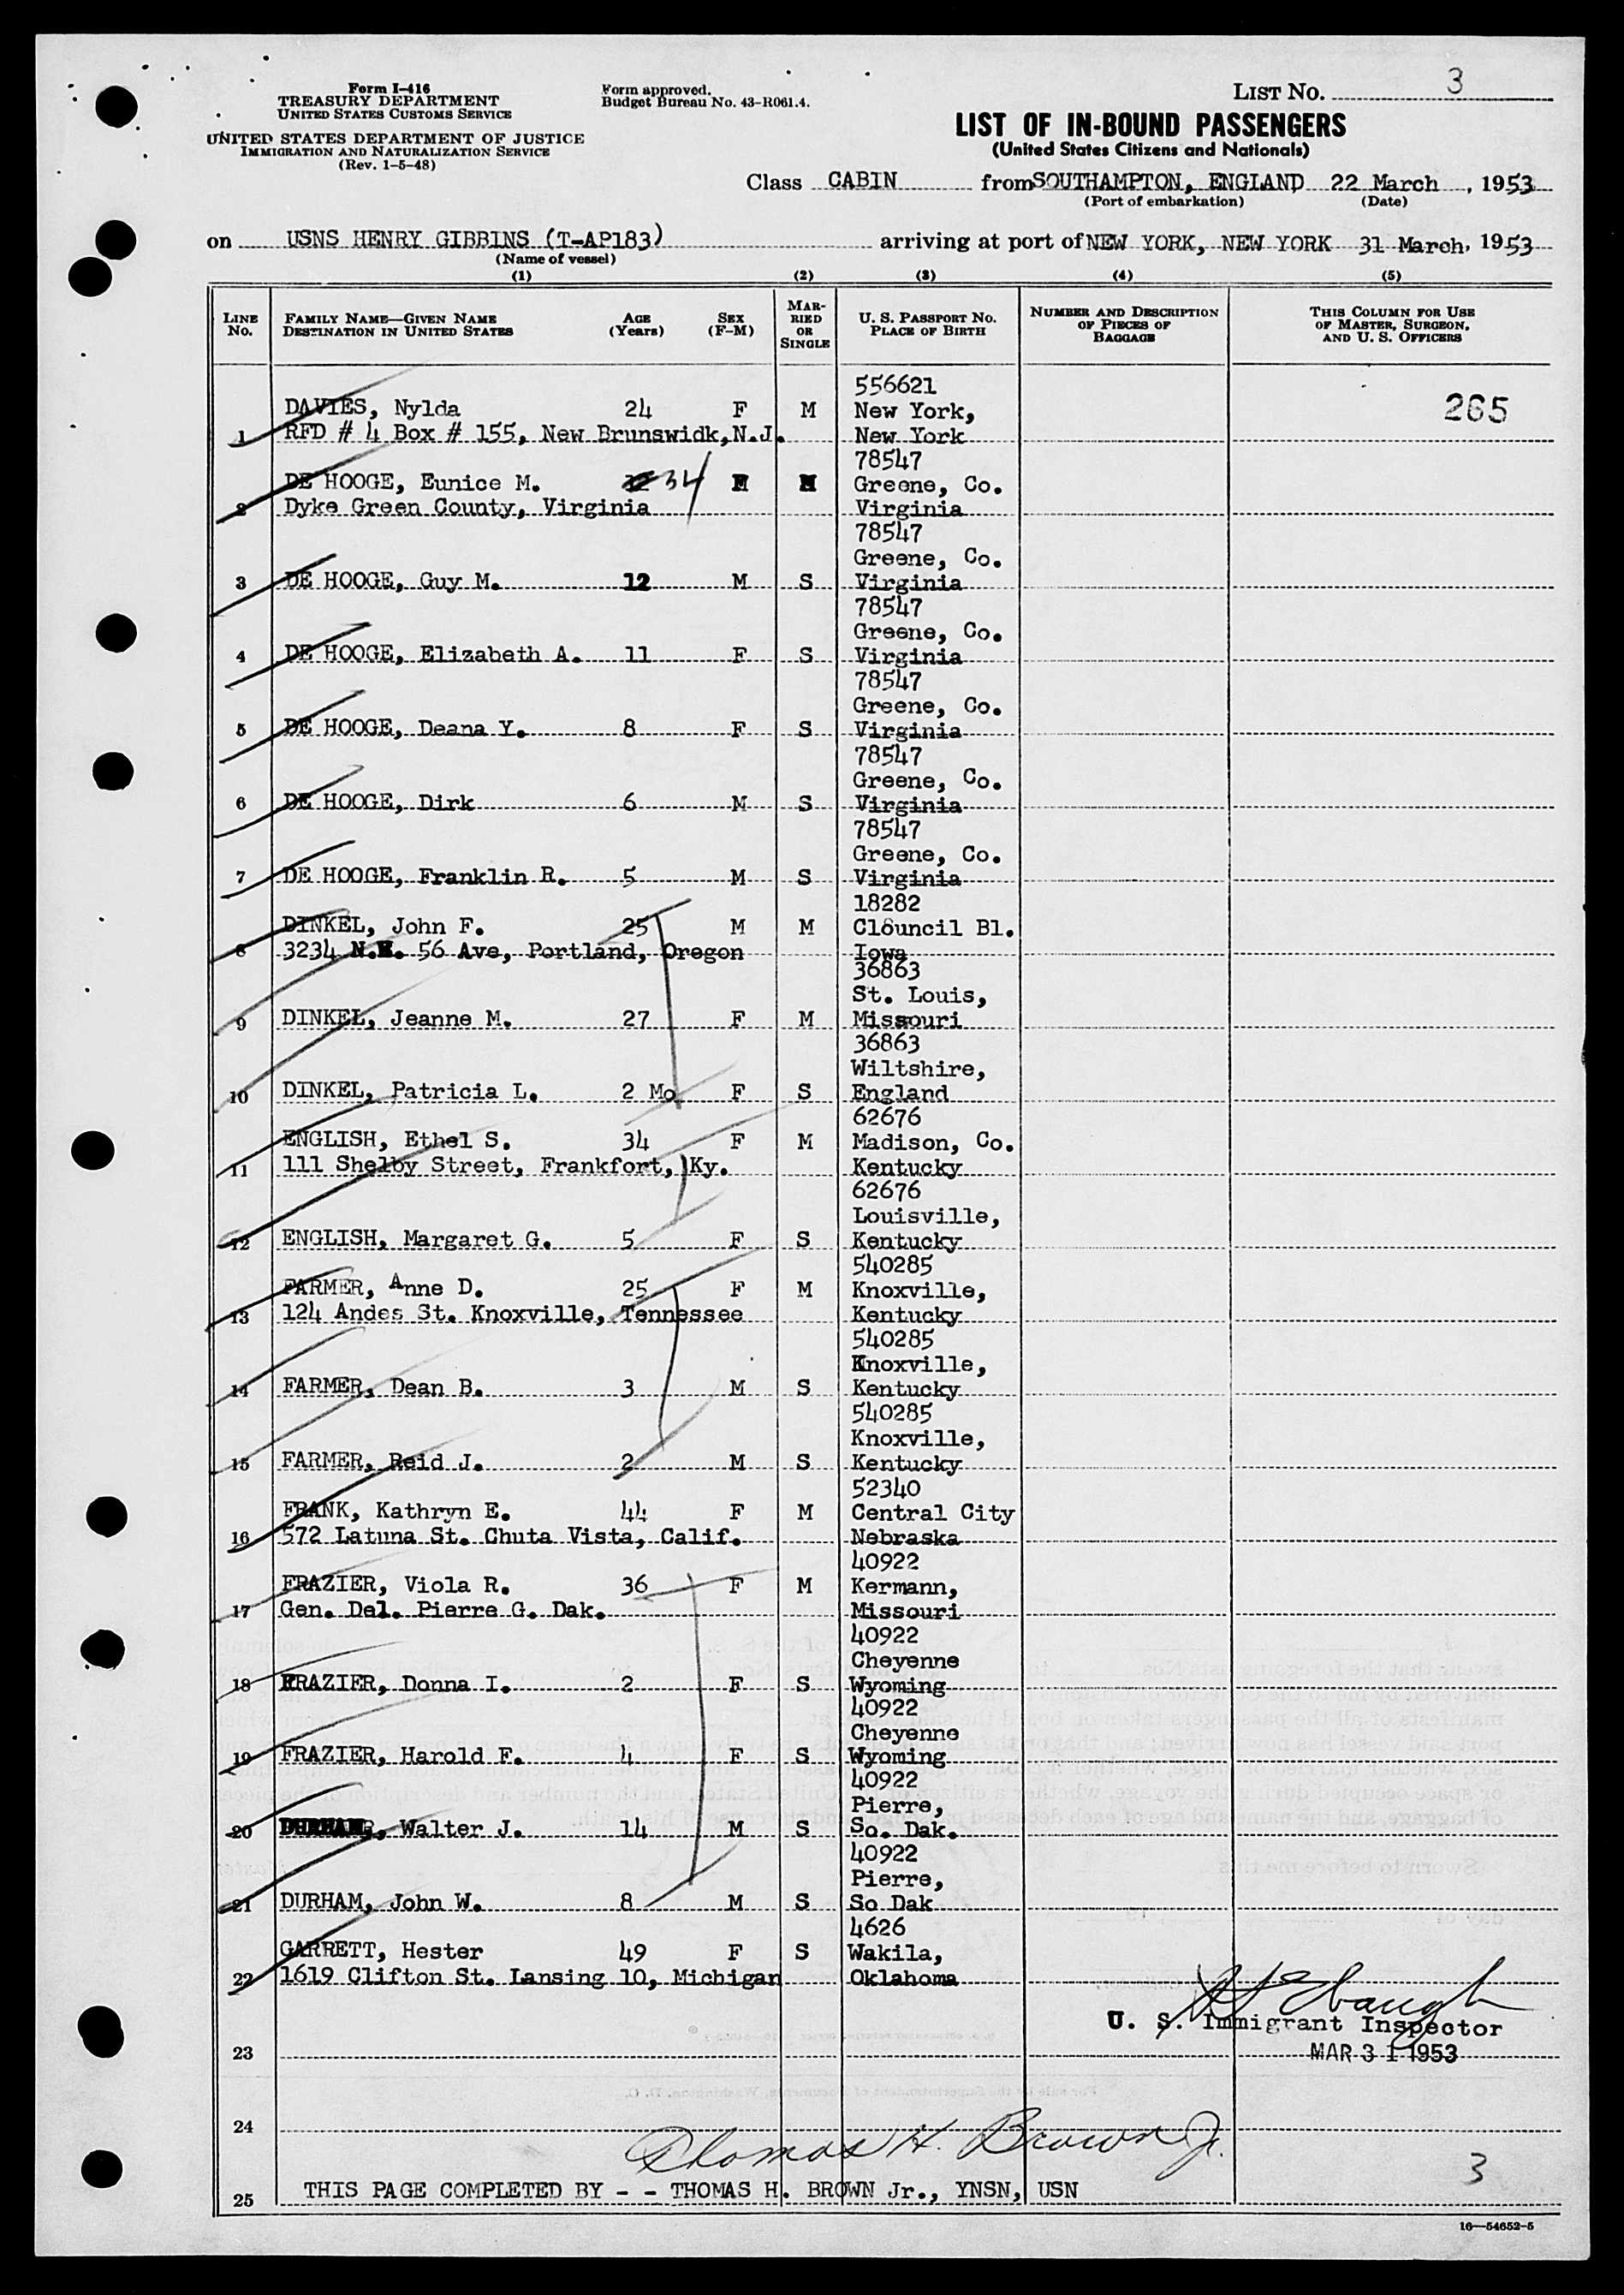 Form I-416
TREASURY DEPARTMENT
UNITED STATES CUSTOMS SERVICE
UNITED STATES DEPARTMENT OF JUSTICE
IMMIGRATION AND NATURALIZATION SERVICE
(Rev. 1-5-48)
Form approved.
Budget Bureau No. 43-R061.4.
LIST NO. 3
LIST OF IN-BOUND PASSENGERS
(United States Citizens and Nationals)
Class CABIN from SOUTHAMPTON, ENGLAND 22 March, 1953
(Port of embarkation) (Date)
on USNS HENRY GIBBINS (T-AP183) arriving at port of NEW YORK, NEW YORK 31 March, 1953
(Name of vessel)
(1) (2) (3) (4) (5)
LINE No. FAMILY NAME—GIVEN NAME DESTINATION IN UNITED STATES AGE (Years) SEX (F-M) MARRIED OR SINGLE U. S. PASSPORT NO. PLACE OF BIRTH NUMBER AND DESCRIPTION OF PIECES OF BAGGAGE THIS COLUMN FOR USE OF MASTER, SURGEON, AND U. S. OFFICERS
556621
DAVIES, Nylda 24 F M New York, 265
1 RFD # 4 Box # 155, New Brunswidk, N.J. New York
78547
DE HOOGE, Eunice M. 34 F M Greene, Co.
2 Dyke Green County, Virginia Virginia
78547
Greene, Co.
3 DE HOOGE, Guy M. 12 M S Virginia
78547
Greene, Co.
4 DE HOOGE, Elizabeth A. 11 F S Virginia
78547
Greene, Co.
5 DE HOOGE, Deana Y. 8 F S Virginia
78547
Greene, Co.
6 DE HOOGE, Dirk 6 M S Virginia
78547
Greene, Co.
7 DE HOOGE, Franklin R. 5 M S Virginia
18282
DINKEL, John F. 25 M M Clouncil Bl.
8 3234 N.E. 56 Ave, Portland, Oregon Iowa
36863
St. Louis,
9 DINKEL, Jeanne M. 27 F M Missouri
36863
Wiltshire,
10 DINKEL, Patricia L. 2 Mo F S England
62676
ENGLISH, Ethel S. 34 F M Madison, Co.
11 111 Shelby Street, Frankfort, Ky. Kentucky
62676
Louisville,
12 ENGLISH, Margaret G. 5 F S Kentucky
540285
FARMER, Anne D. 25 F M Knoxville,
13 124 Andes St. Knoxville, Tennessee Kentucky
540285
Knoxville,
14 FARMER, Dean B. 3 M S Kentucky
540285
Knoxville,
15 FARMER, Reid J. 2 M S Kentucky
52340
FRANK, Kathryn E. 44 F M Central City
16 572 Latuna St. Chuta Vista, Calif. Nebraska
40922
FRAZIER, Viola R. 36 F M Kermann,
17 Gen. Del. Pierre G. Dak. Missouri
40922
Cheyenne
18 FRAZIER, Donna I. 2 F S Wyoming
40922
Cheyenne
19 FRAZIER, Harold F. 4 F S Wyoming
40922
Pierre,
20 DURHAM, Walter J. 14 M S So. Dak.
40922
Pierre,
21 DURHAM, John W. 8 M S So Dak
4626
GARRETT, Hester 49 F S Wakila,
22 1619 Clifton St. Lansing 10, Michigan Oklahoma
U. S. Immigrant Inspector
23 MAR 31 1953
24
Thomas H. Brown Jr.
3
25 THIS PAGE COMPLETED BY - - THOMAS H. BROWN Jr., YNSN, USN
16—54652-5